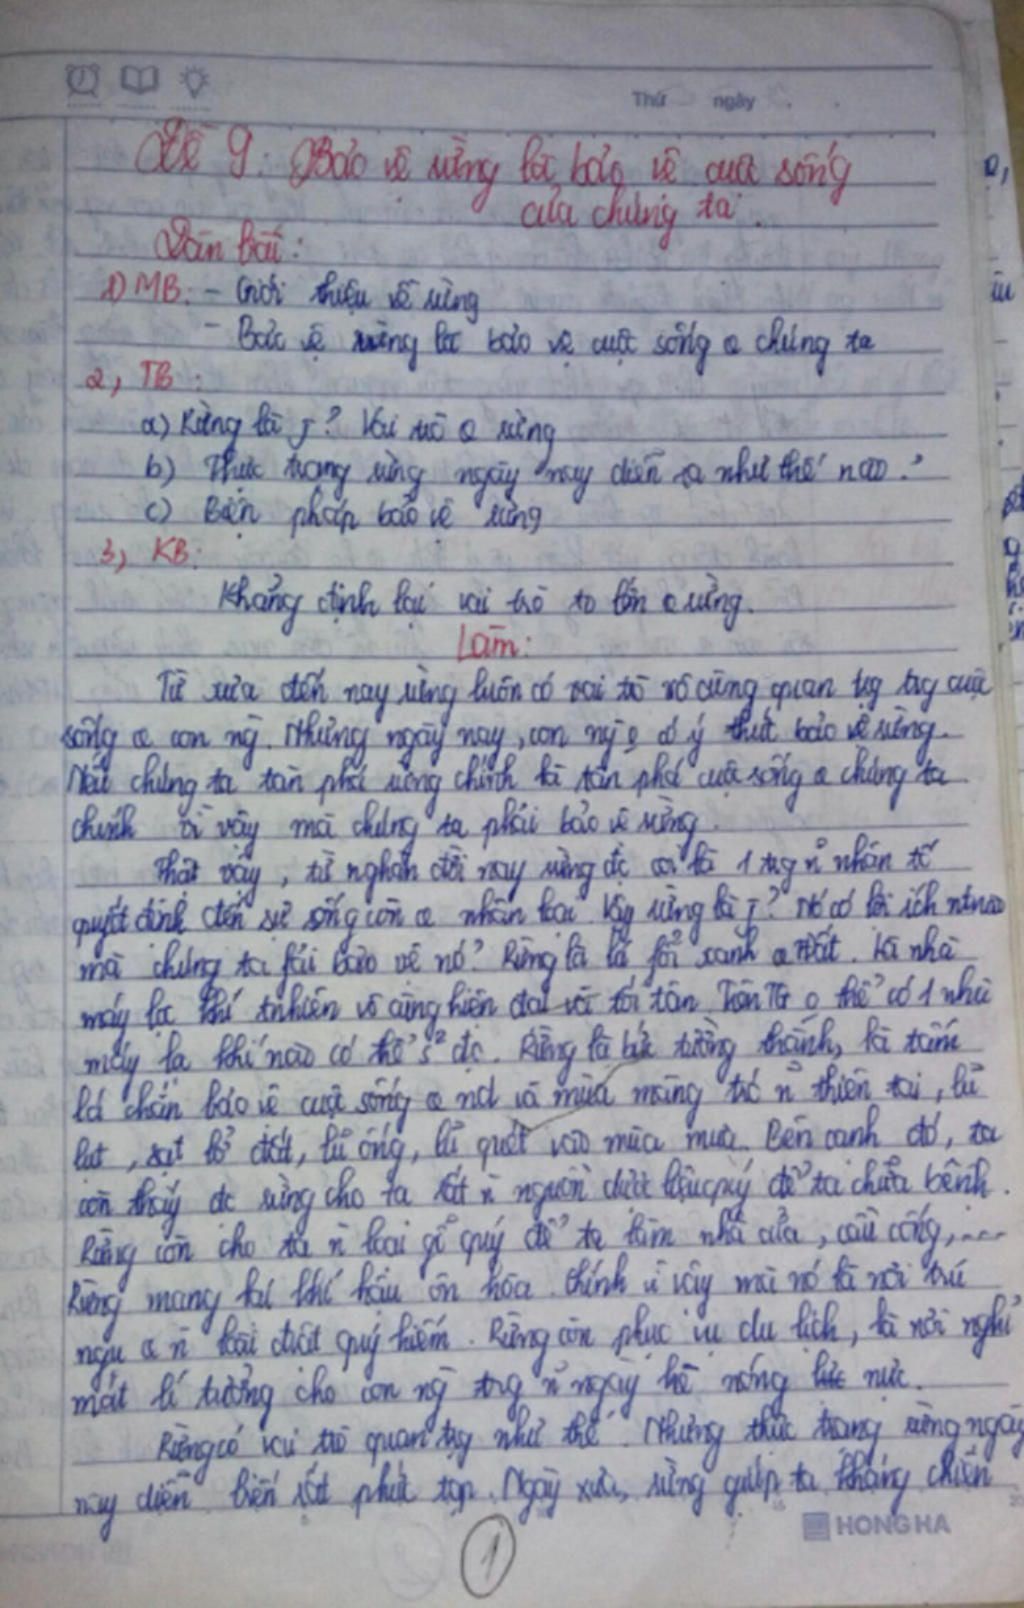 Thứ ngày
Đề 9: Bảo vệ rừng là bảo vệ cuộc sống
của chúng ta.
Dàn bài:
1) MB: - Giới thiệu về rừng
- Bảo vệ rừng là bảo vệ cuộc sống ɑ chúng ta
2, TB:
a) Rừng là j? Vai trò ɑ rừng
b) Thực trạng rừng ngày nay diễn ra như thế nào?
c) Biện pháp bảo vệ rừng
3, KB:
Khẳng định lại vai trò to lớn ɑ rừng.
Làm:
Từ xưa đến nay rừng luôn có vai trò vô cùng quan trg trg cuộc
sống ɑ con ng. Nhưng ngày nay, con ng o có ý thức bảo vệ rừng.
Nếu chúng ta tàn phá rừng chính là tàn phá cuộc sống ɑ chúng ta
chính vì vậy mà chúng ta phải bảo vệ rừng.
Thật vậy, từ nghàn đời nay rừng đc coi là 1 trg n~ nhân tố
quyết định đến sự sống còn ɑ nhân loại Vậy rừng là j? Nó có lợi ích ntnào
mà chúng ta fải bảo vệ nó? Rừng là lá fổi xanh ɑ TĐất. Là nhà
máy lọc khí tnhiên vô cùng hiện đại và tối tân Trên TG o thể có 1 nhà
máy lọc khí nào có thể s² đc. Rừng là bức tường thành, là tấm
lá chắn bảo vệ cuộc sống ɑ nd và mùa màng trc n~ thiên tai, lũ
lụt, sạt lở đất, lũ ống, lũ quét vào mùa mưa. Bên cạnh đó, ta
còn thấy đc rừng cho ta rất n nguồn dược liệu quý để ta chữa bệnh.
Rừng còn cho ta n loại gỗ quý để ta làm nhà cửa, cầu cống,....
Rừng mang lại khí hậu ôn hòa. Chính vì vậy mà nó là nơi trú
ngụ ɑ n loài đvật quý hiếm. Rừng còn phục vụ du lịch, là nơi nghỉ
mát lí tưởng cho con ng trg n~ ngày hè nóng nực.
Rừng có vai trò quan trg như thế. Nhưng thực trạng rừng ngày
nay diễn biến rất phức tạp. Ngày xưa, rừng giúp ta kháng chiến
HONG HA
1